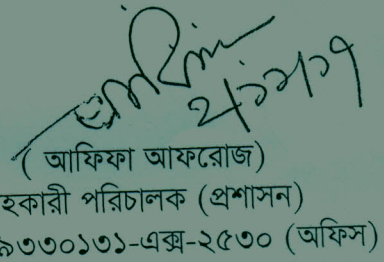 ( আফিফা আফরোজ)
হকারী পরিচালক (প্রশাসন)
৯৩৩০১৩১-এক্স-২৫৩০ (অফিস)